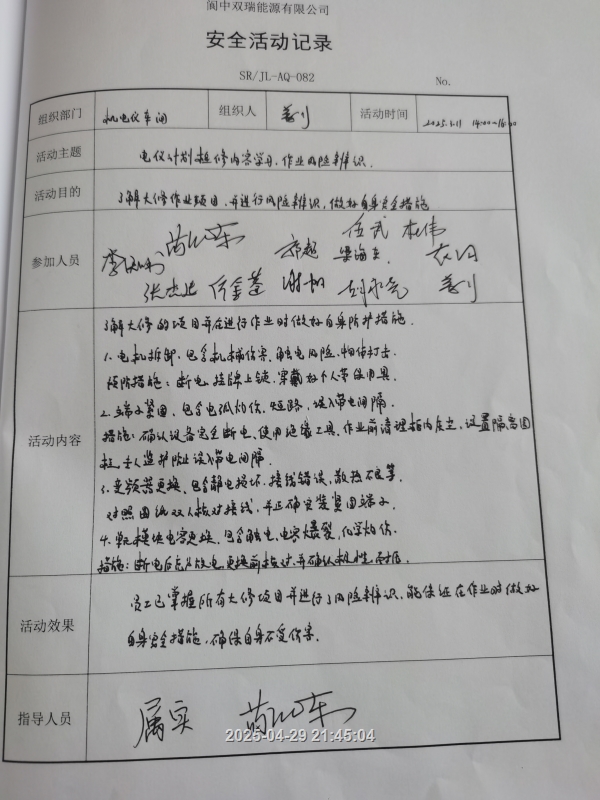 阆中双瑞能源有限公司
安全活动记录
SR/JL-AQ-082 No.
组织部门 机电仪车间 组织人 活动时间 2025.1.11 14:00-16:00
活动主题 电仪计划检修内容学习、作业风险辨识.
活动目的 了解大修作业项目,并进行风险辨识,做好自身安全措施
伍武 杜伟
参加人员 郭超 梁海兵
张杰
活动内容
了解大修的项目并在进行作业时做好自身防护措施.
1. 电机拆卸,包含机械伤害,触电风险,物体打击
预防措施:断电,挂牌上锁,穿戴好个人劳保用具.
2. 端子紧固,包含电弧灼伤,短路,误入带电间隔
措施:确认设备完全断电,使用绝缘工具,作业前清理柜内灰尘,设置隔离围
栏,专人监护防止误入带电间隔.
3. 变频器更换,包含静电损坏,接线错误,散热不良等.
对照图纸双人核对接线,并正确安装紧固端子.
4. 单元模块电容更换,包含触电,电容爆裂,化学灼伤
措施:断电后充分放电,更换前核对,并确认极性
活动效果
员工已掌握所有大修项目并进行了风险辨识,能保证在作业时做好
自身安全措施,确保自身不受伤害.
指导人员 属实
2025-04-29 21:45:04